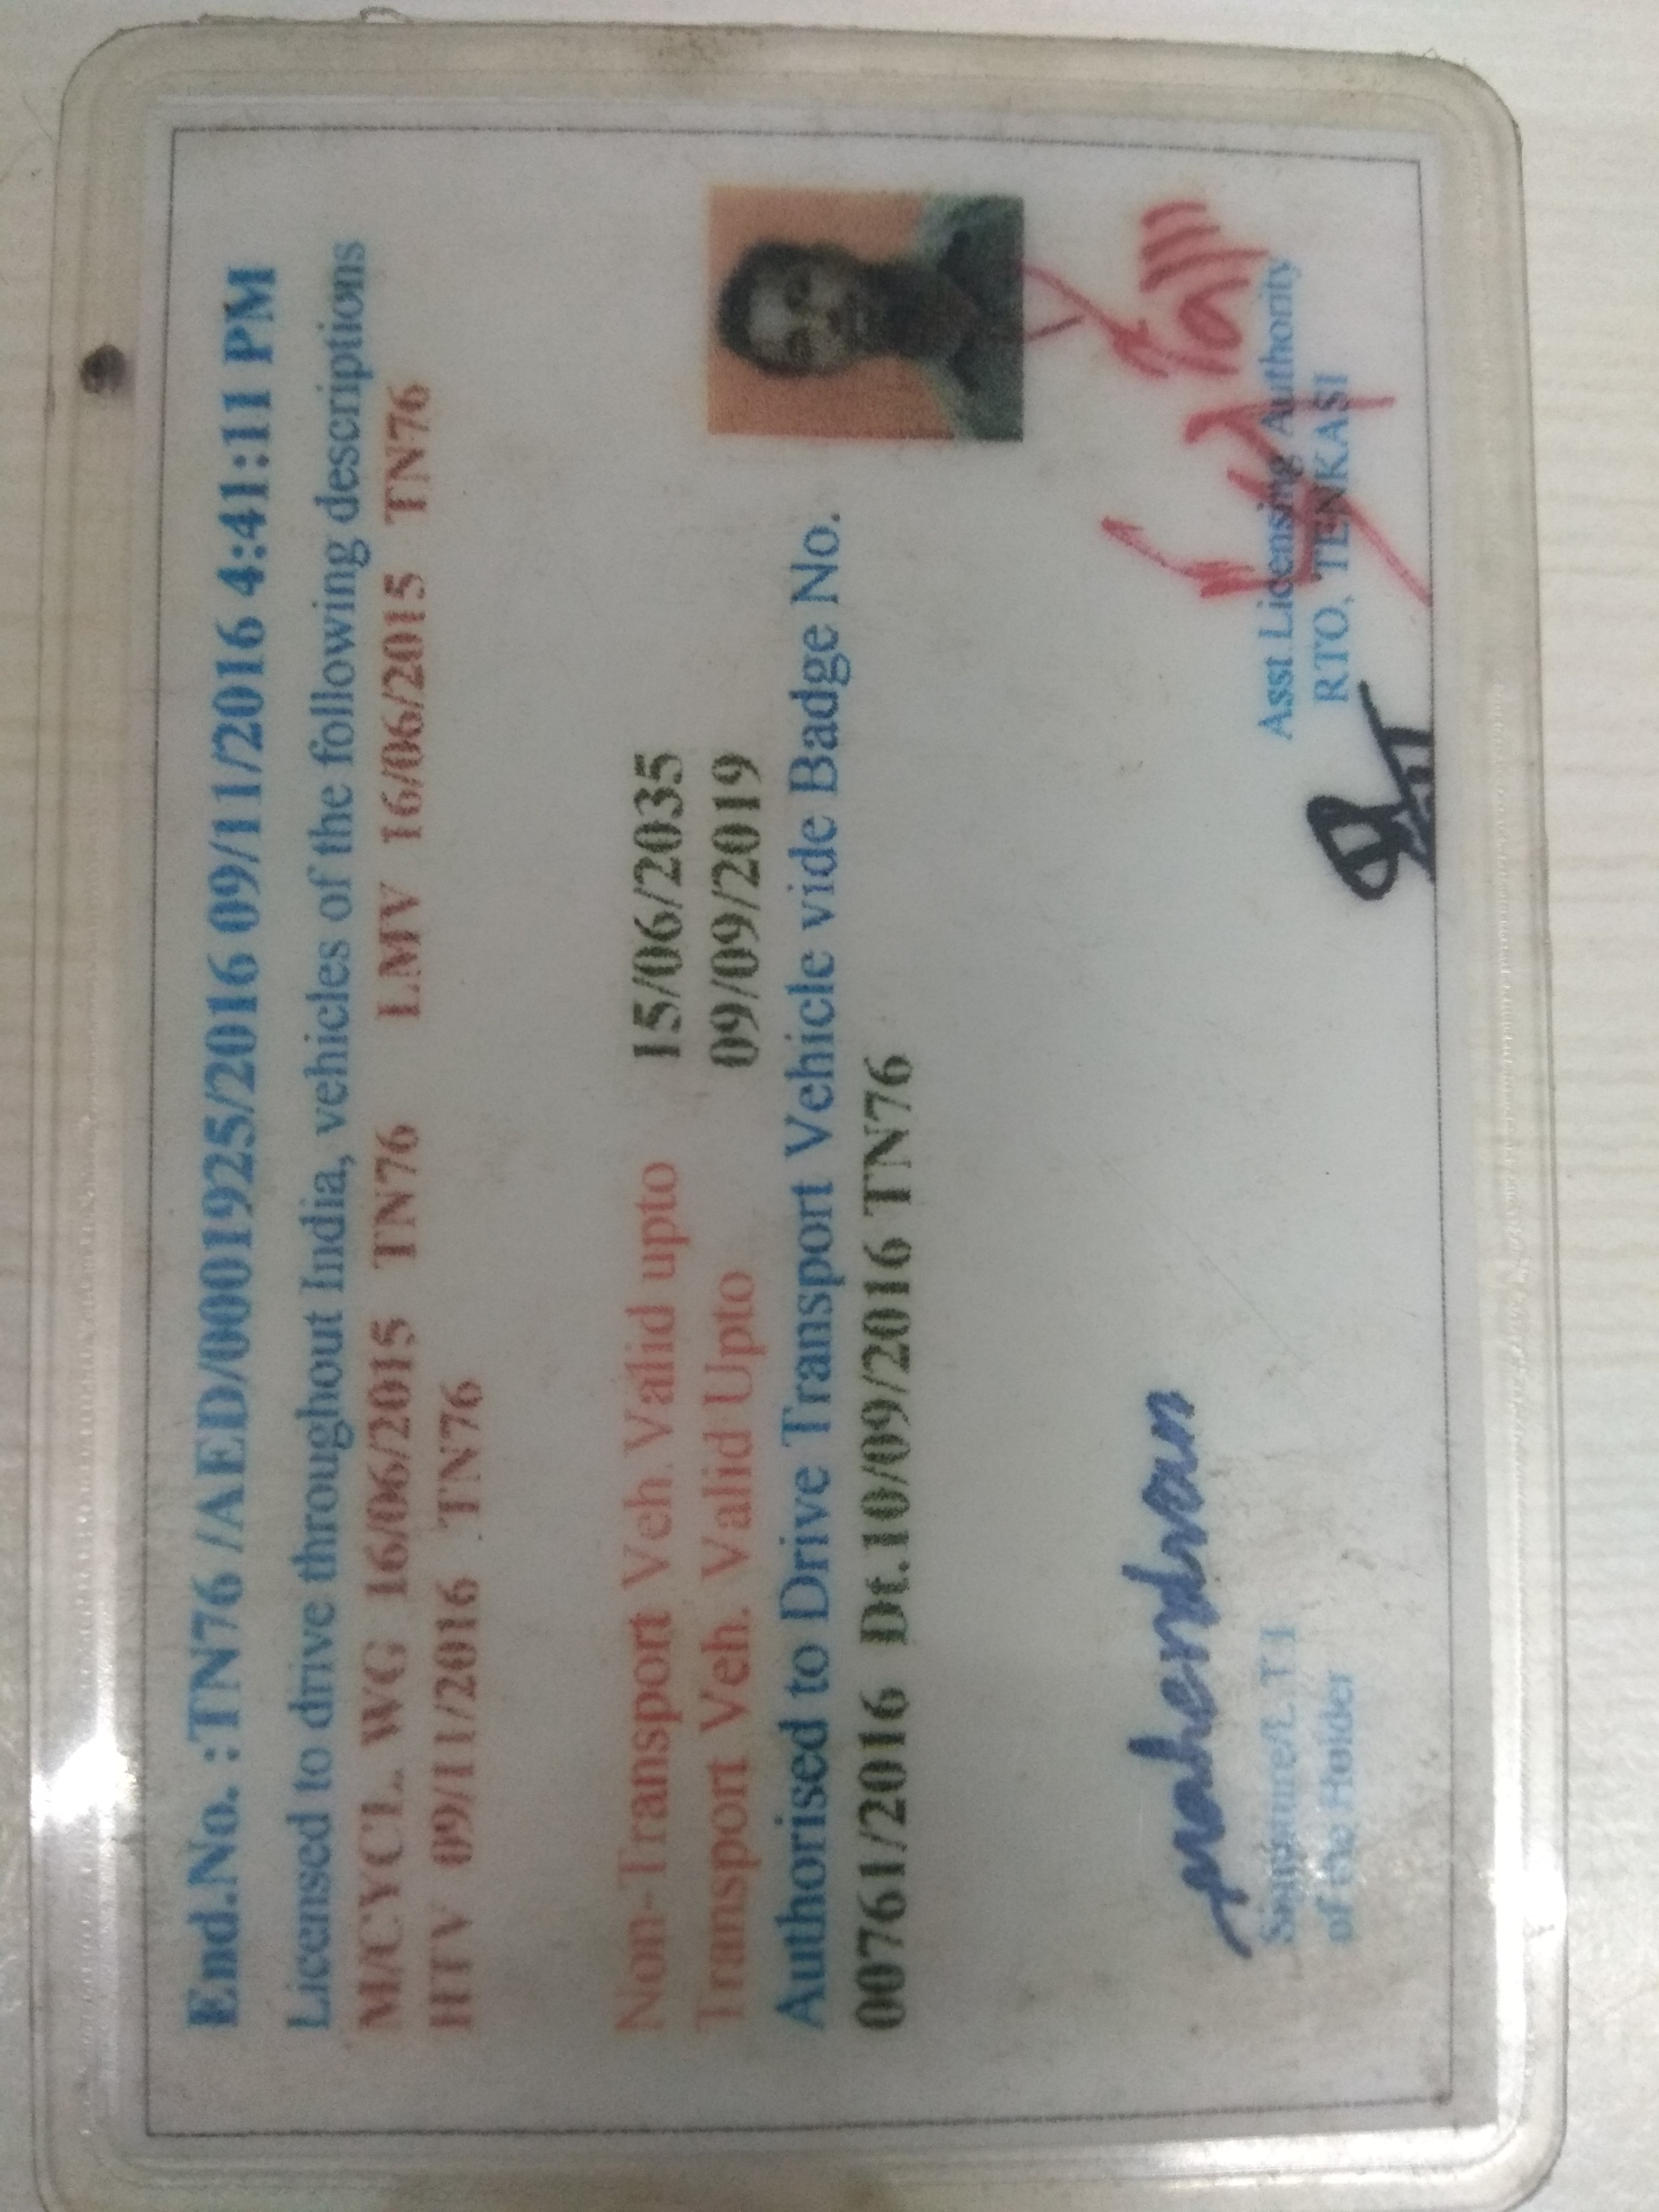 End.No. :TN76 /AED/0001925/2016 09/11/2016 4:41:11 PM
Licensed to drive throughout India, vehicles of the following descriptions
M/CYCL. WG 16/06/2015 TN76 LMV 16/06/2015 TN76
HTV 09/11/2016 TN76
Non-Transport Veh. Valid upto 15/06/2035
Transport Veh. Valid Upto 09/09/2019
Authorised to Drive Transport Vehicle vide Badge No.
00761/2016 Dt.10/09/2016 TN76
mahendran
Signature/L.T.I
of the Holder
Asst Licensing Authority
RTO, TENKASI